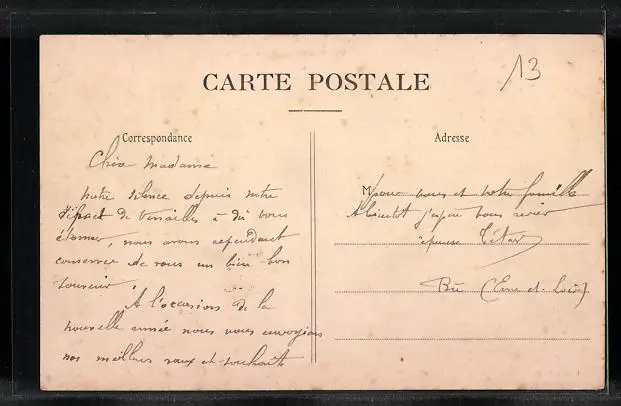 CARTE POSTALE
13
Correspondance
Adresse
Chère Madame
notre silence depuis notre
départ de Versailles a dû vous
étonner, nous avons cependant
conservé de vous un bien bon
souvenir.
A l'occasion de la
nouvelle année nous vous envoyons
nos meilleurs vœux et souhaits
M
pour vous et votre famille
A bientôt j'espère vous revoir
épouse
Bû (Eure-et-Loir)